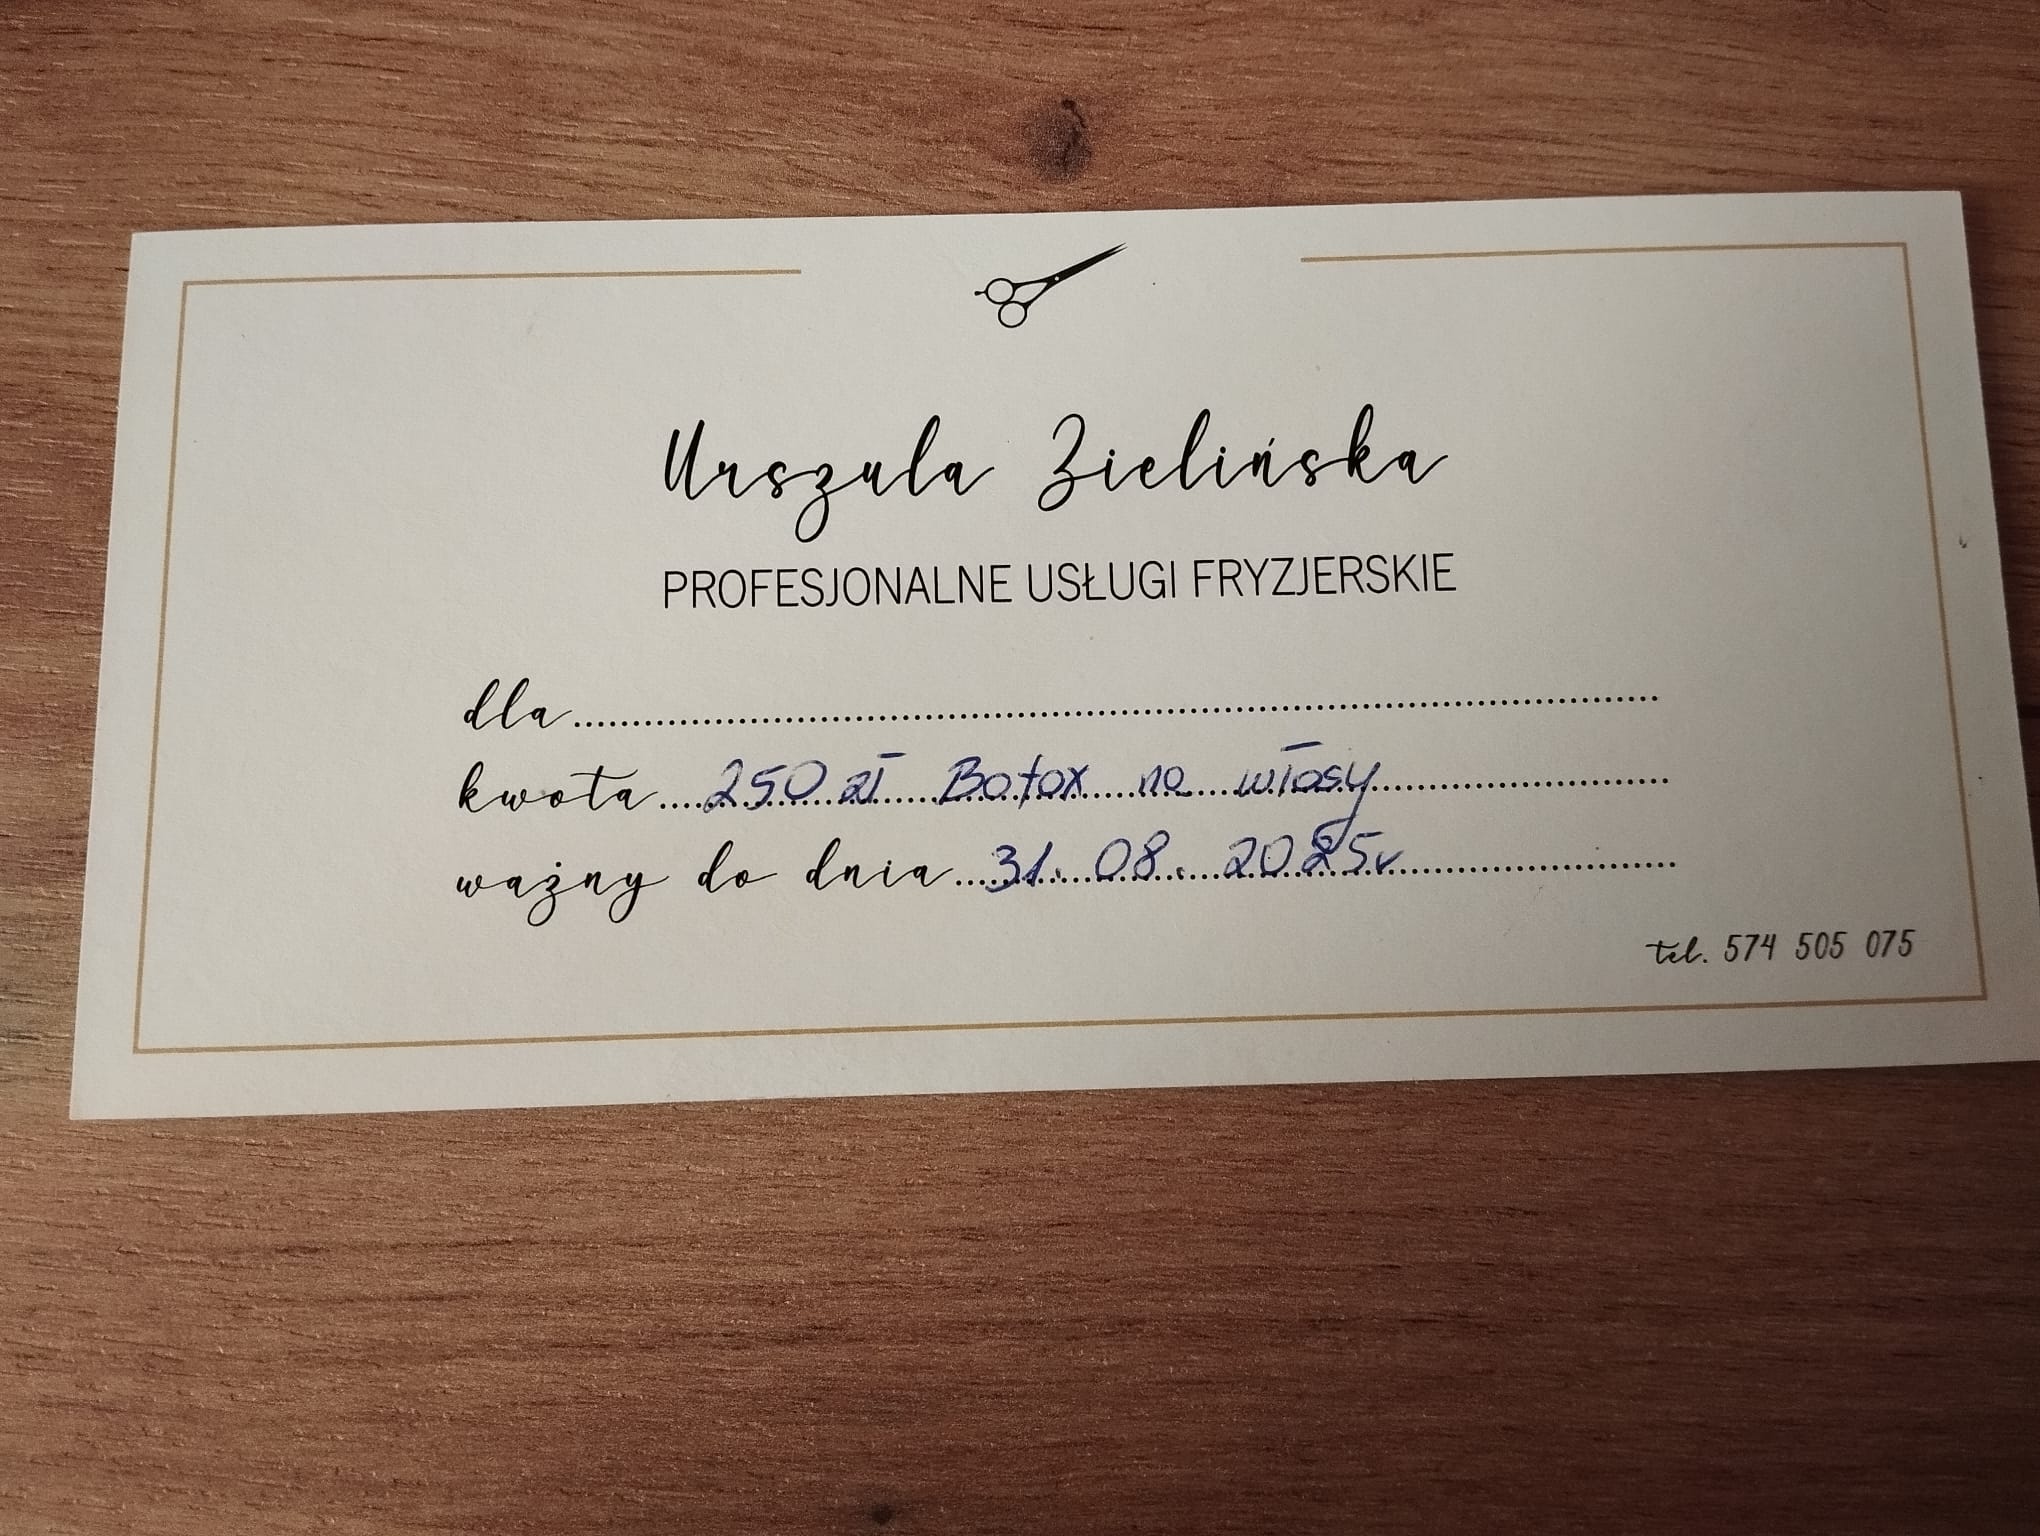 Urszula Zielińska
PROFESJONALNE USŁUGI FRYZJERSKIE
dla........................................................................
kwota....250 zł Botox na włosy....................
ważny do dnia....31. 08. 2025r....................
tel. 574 505 075